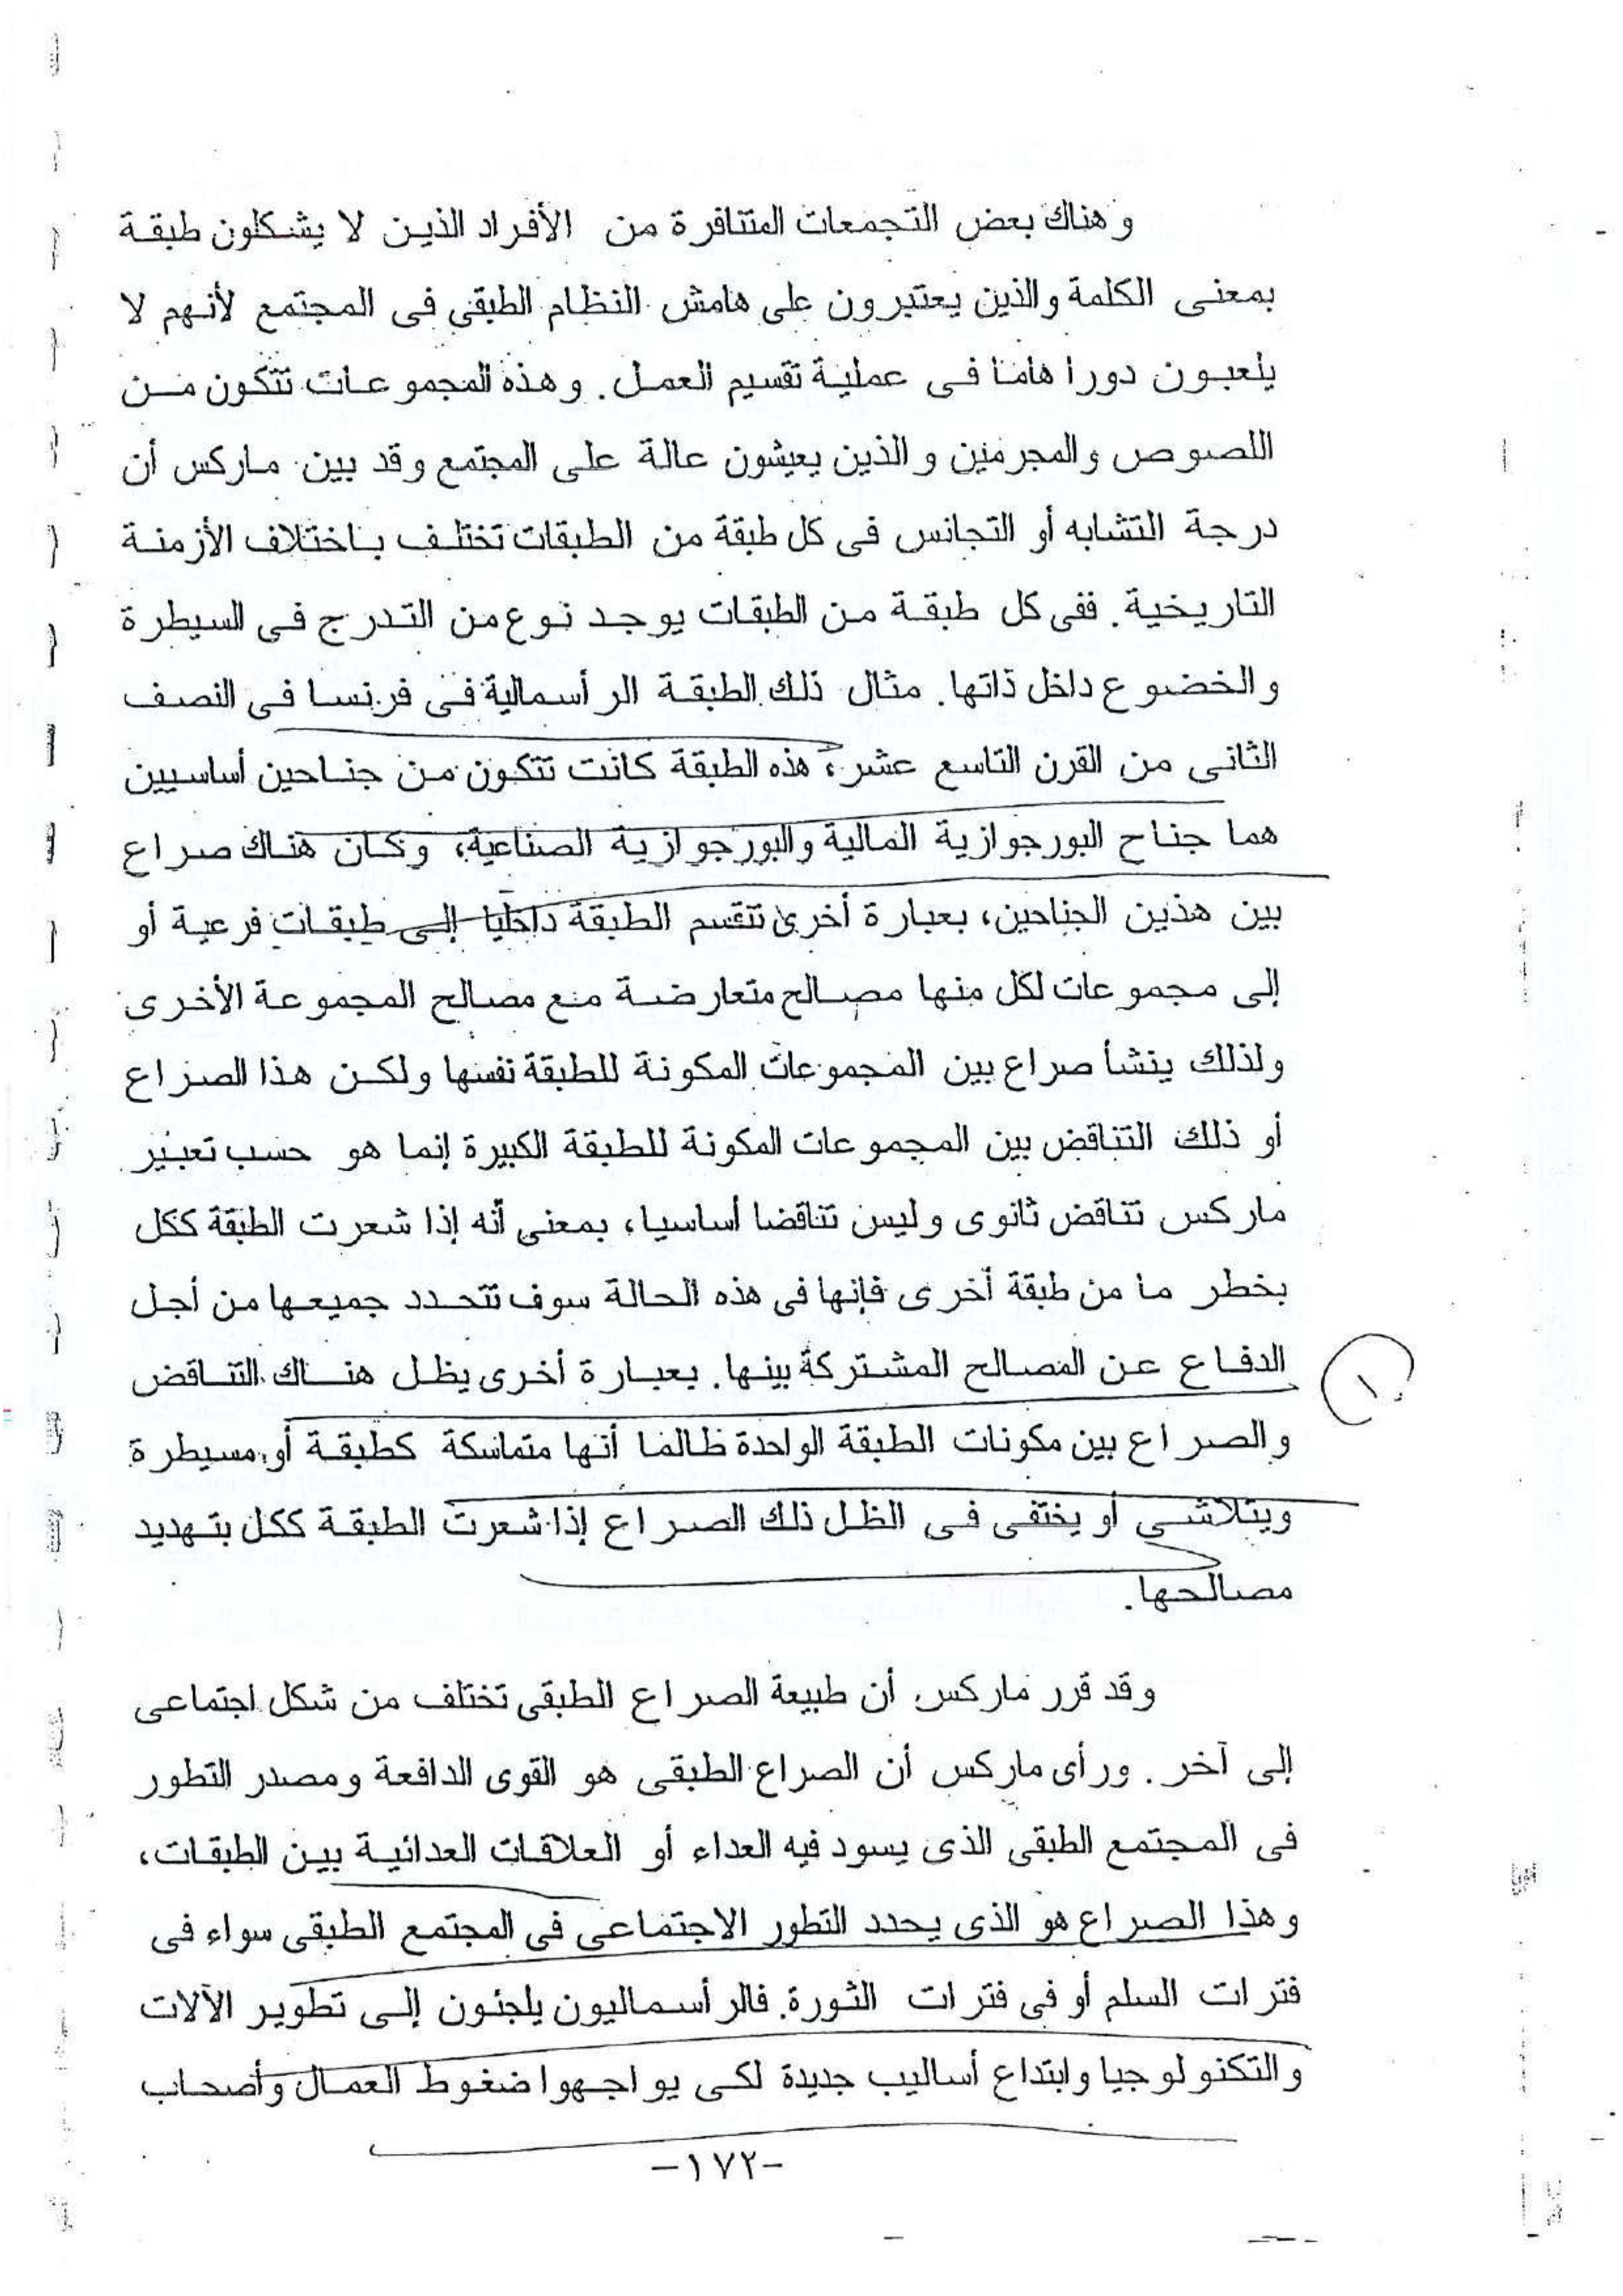 وهناك بعض التجمعات المتنافرة من الأفراد الذين لا يشكلون طبقة
بمعنى الكلمة والذين يعتبرون على هامش النظام الطبقى فى المجتمع لأنهم لا
يلعبون دورا هاما فى عملية تقسيم العمل. وهذه المجموعات تتكون من
اللصوص والمجرمين والذين يعيشون عالة على المجتمع وقد بين ماركس أن
درجة التشابه أو التجانس فى كل طبقة من الطبقات تختلف باختلاف الأزمنة
التاريخية. ففى كل طبقة من الطبقات يوجد نوع من التدرج فى السيطرة
والخضوع داخل ذاتها. مثال ذلك الطبقة الرأسمالية فى فرنسا فى النصف
الثانى من القرن التاسع عشر، هذه الطبقة كانت تتكون من جناحين أساسيين
هما جناح البورجوازية المالية والبورجوازية الصناعية، وكان هناك صراع
بين هذين الجناحين، بعبارة أخرى تنقسم الطبقة داخليا إلى طبقات فرعية أو
إلى مجموعات لكل منها مصالح متعارضة مع مصالح المجموعة الأخرى
ولذلك ينشأ صراع بين المجموعات المكونة للطبقة نفسها ولكن هذا الصراع
أو ذلك التناقض بين المجموعات المكونة للطبقة الكبيرة إنما هو حسب تعبير
ماركس تناقض ثانوى وليس تناقضا أساسيا، بمعنى أنه إذا شعرت الطبقة ككل
بخطر ما من طبقة أخرى فإنها فى هذه الحالة سوف تتحدد جميعها من أجل
الدفاع عن المصالح المشتركة بينها. بعبارة أخرى يظل هناك التناقض
والصراع بين مكونات الطبقة الواحدة طالما أنها متماسكة كطبقة أو مسيطرة
ويتلاشى أو يختفى فى الظل ذلك الصراع إذا شعرت الطبقة ككل بتهديد
مصالحها.
١
وقد قرر ماركس أن طبيعة الصراع الطبقى تختلف من شكل اجتماعى
إلى آخر. ورأى ماركس أن الصراع الطبقى هو القوى الدافعة ومصدر التطور
فى المجتمع الطبقى الذى يسود فيه العداء أو العلاقات العدائية بين الطبقات،
وهذا الصراع هو الذى يحدد التطور الاجتماعى فى المجتمع الطبقى سواء فى
فترات السلم أو فى فترات الثورة. فالرأسماليون يلجئون إلى تطوير الآلات
والتكنولوجيا وابتداع أساليب جديدة لكى يواجهوا ضغوط العمال وأصحاب
-١٧٢-